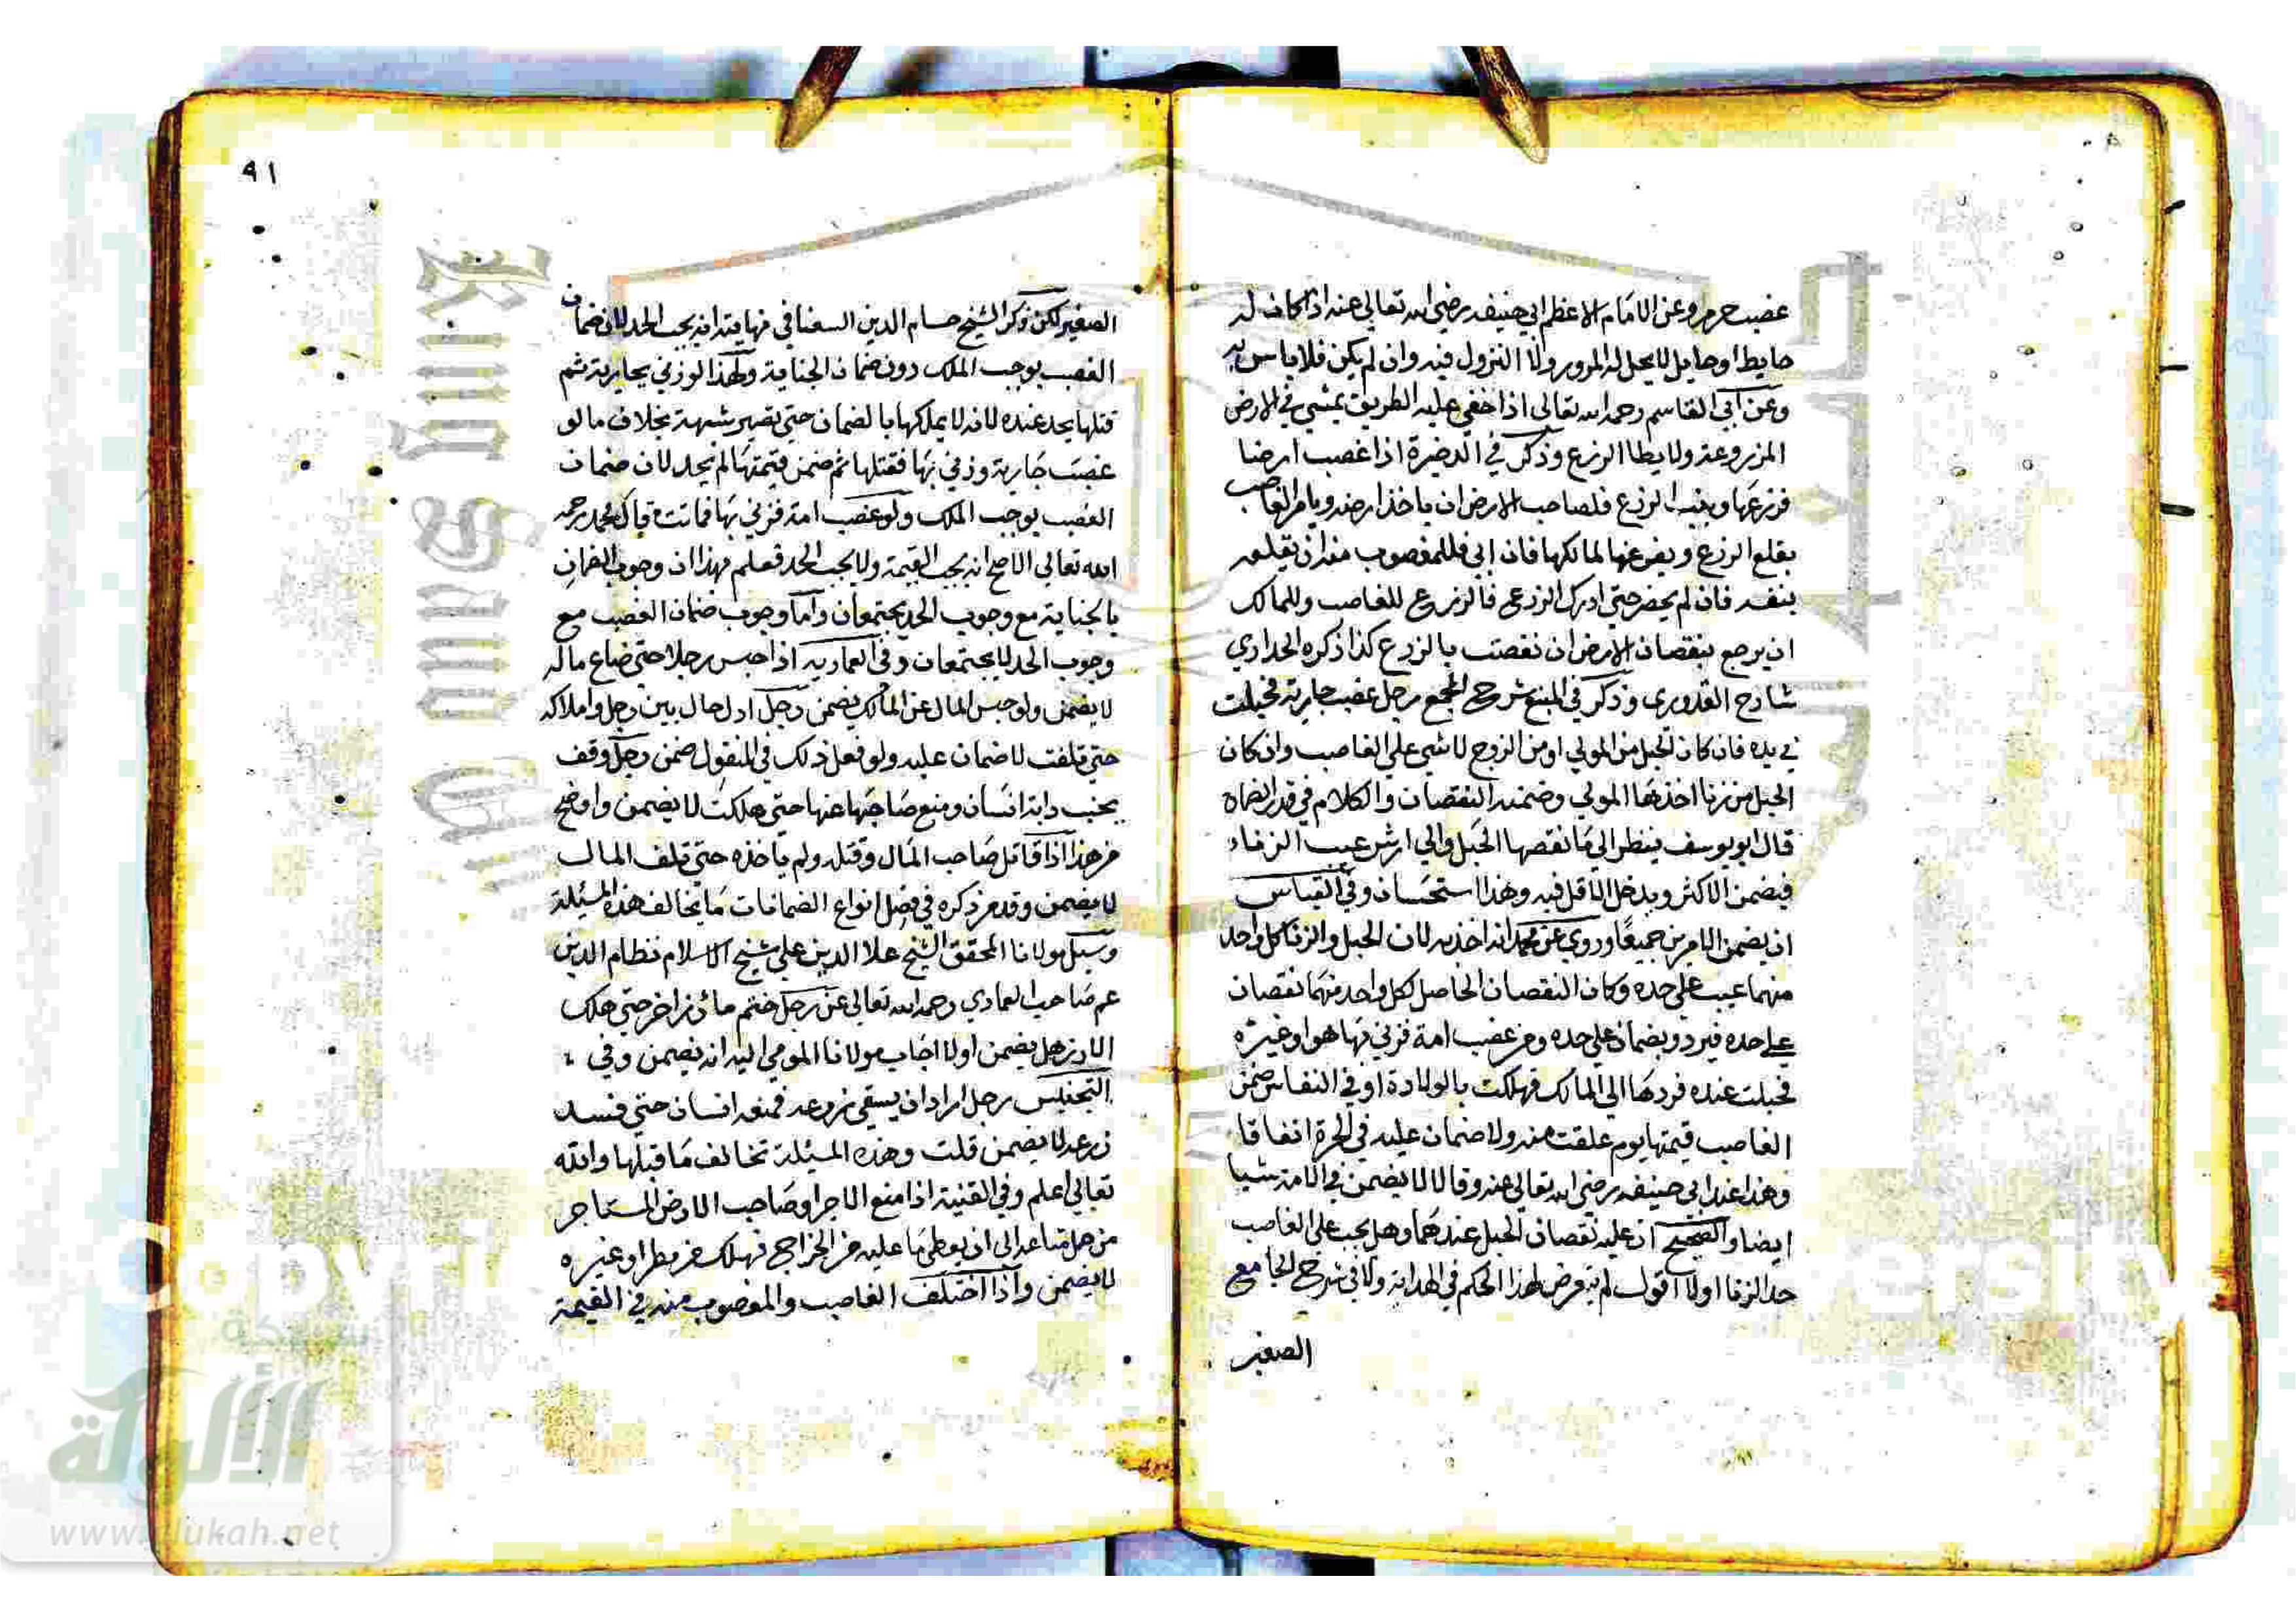 غصب حرم وعن الامام الاعظم ابي حنيفه رضي الله تعالى عنه اذا كان له
حايطا وحايل لا يحل له المرور ولا النزول فيه وان لم يكن فلا باس به
وعن ابي القاسم رحمه الله تعالى اذا خفي عليه الطريق يمشي في الارض
المزروعة ولا يطا الزرع وذكر في الذخيرة اذا غصب ارضا
فزرعها ونبت الزرع فلصاحب الارض ان ياخذ ارضه ويامر الغاصب
بقلع الزرع ويفرغها لمالكها فان ابى فللمغصوب منه ان يقلعه
بنفسه فان لم يحضر حتى ادرك الزرع فالزرع للغاصب وللمالك
ان يرجع بنقصان الارض ان نقصت بالزرع كذا ذكره الحدادي
شارح القدوري وذكر في المنبع شرح المجمع رجل غصب جارية فحبلت
في يده فان كان الحبل من المولي او من الزوج لا شي علي الغاصب وان كان
الحبل من زنا اخذها المولي وضمنه النقصان والكلام في قدر الضمان
قال ابو يوسف ينظر الي ما نقصها الحبل والي ارش عيب الزناء
فيضمن الاكثر ويدخل الاقل فيه وهذا استحسان وفي القياس
ان يضمن الامرين جميعا وروي عن محمد انه اخذ به لان الحبل والزنا كل واحد
منهما عيب علي حده وكان النقصان الحاصل لكل واحد منهما نقصان
علي حده فيرد وبضمان علي حده ومن غصب امة فزني بها هو او غيره
فحبلت عنده فردها الي المالك فهلكت بالولادة او في النفاس ضمن
الغاصب قيمتها يوم علقت منه ولا ضمان عليه في الحرة اتفاقا
وهذا عند ابي حنيفه رضي الله تعالى عنه وقالا لا يضمن في الامة شيا
ايضا والصحيح ان عليه نقصان الحبل عندهما وهل يجب علي الغاصب
حد الزنا او لا اقول لم يتعرض لهذا الحكم في الهداية ولا في شرح الجامع
الصغير
٩١
الصغير لكن ذكر الشيخ حسام الدين السغناقي في نهايته انه يجب الحد لان ضمان
الغصب يوجب الملك دون ضمان الجناية ولهذا لو زني بجارية ثم
قتلها يحد عنده لانه لا يملكها بالضمان حتى تصير شبهة بخلاف ما لو
غصب جارية وزني بها فقتلها ثم ضمن قيمتها لم يحد لان ضمان
الغصب يوجب الملك ولو غصب امة فزني بها فماتت قال محمد رحمه
الله تعالي الاصح انه يجب القيمة ولا يجب الحد فعلم بهذا ان وجوب الضمان
بالجناية مع وجوب الحد يجتمعان واما وجوب ضمان الغصب مع
وجوب الحد لا يجتمعان وفي العمادية اذا حبس رجلا حتى ضاع ماله
لا يضمن ولو حبس المال عن المالك يضمن رجل حال بين رجل واملاكه
حتى تلفت لا ضمان عليه ولو فعل ذلك في المنقول ضمن رجل وقف
بجنب دابة انسان ومنع صاحبها عنها حتى هلكت لا يضمن واوضح
من هذا اذا قاتل صاحب المال وقتله ولم ياخذه حتى تلف المال
لا يضمن وقد مر ذكره في فصل انواع الضمانات ما يخالف هذه المسئلة
وسيل مولانا المحقق الشيخ علا الدين علي شيخ الاسلام نظام الدين
عم صاحب العمادي رحمه الله تعالى عن رجل حتى هلك
هل يضمن او لا اجاب مولانا المومي اليه انه يضمن وفي
التجنيس رجل اراد ان يسقي زرعه فمنعه انسان حتى فسد
زرعه لا يضمن قلت وهذه المسئلة تخالف ما قبلها والله
تعالي اعلم وفي القنية اذا منع الاجر او صاحب الارض المستاجر
من حمل متاعه الي ان يعطي ما عليه من الخراج فهلك من مطر او غيره
لا يضمن واذا اختلف الغاصب والمغصوب منه في القيمة
شبكة
الألوكة
www.alukah.net